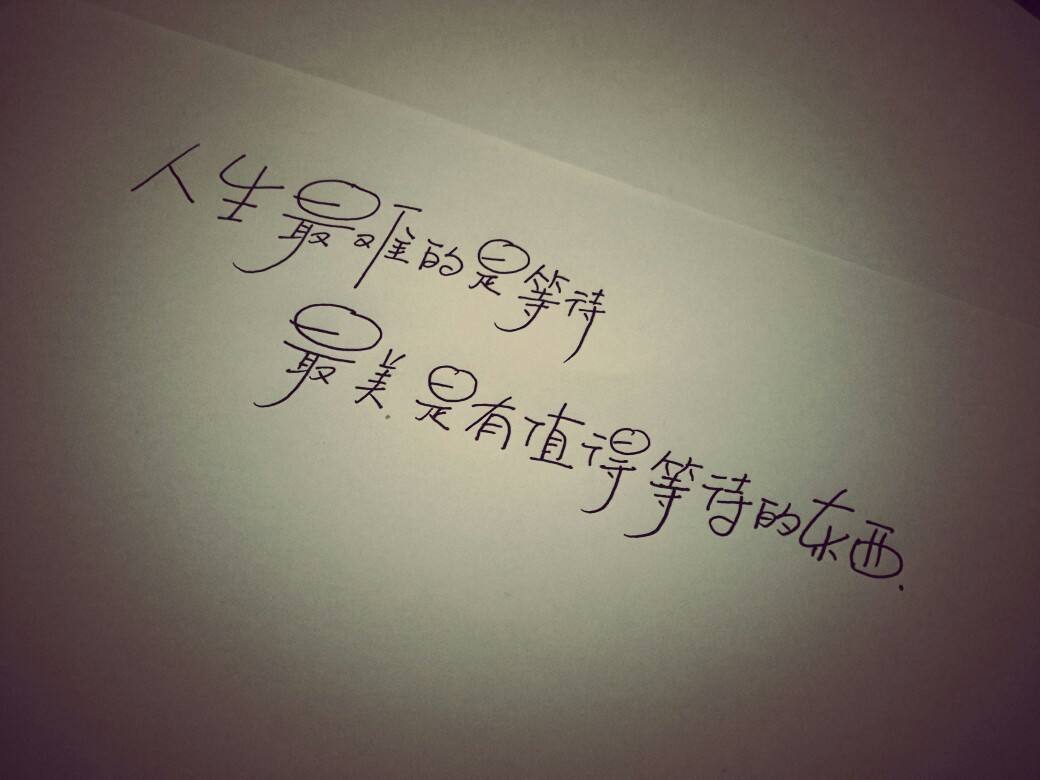 人生最难的是等待
最美.是有值得等待的东西.